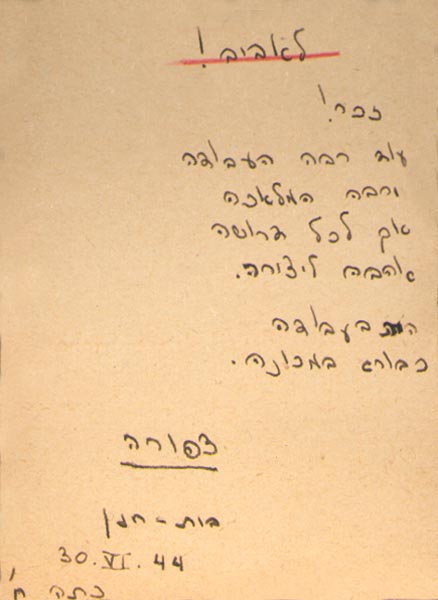 לאביב!
זכר!
עוד רבה העבודה
ורבה המלאכה
אך לכל דרושה
אהבה ליצירה.
בעבודה
כבורג במכונה.
צפורה
בית-חנן
30.VI.44
כתה ח'